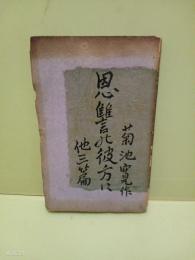 恩讐の彼方に
他三篇
菊池寛作